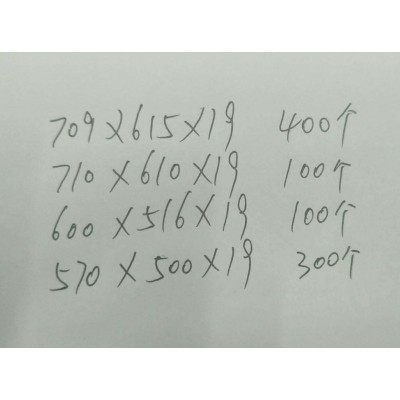 709×615×19 400个
710×610×19 100个
600×516×19 100个
570×500×19 300个